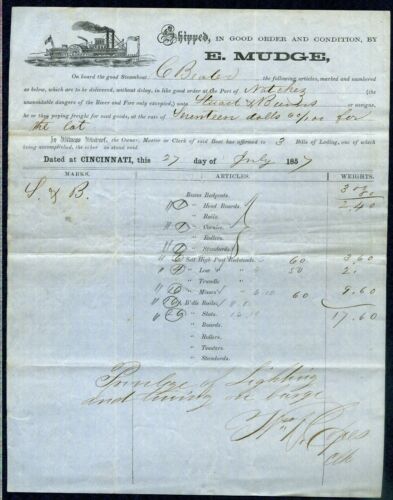 Shipped, IN GOOD ORDER AND CONDITION, BY
E. MUDGE,
On board the good Steamboat, the following articles, marked and numbered
as below, which are to be delivered, without delay, in like good order at Port of Natchez (the
unavoidable dangers of the River and Fire only excepted,) unto Stuart & or assigns,
he or they paying freight for said goods, at the rate of dolls for
the lot
In Witness Whereof, the Owner, Master or Clerk of said Boat has affirmed to 3 Bills of Lading, one of which
being accomplished, the other to stand void
Dated at CINCINNATI, this 27 day of July 1857
MARKS. ARTICLES. WEIGHTS.
S. & B.
Boxes Bedposts,
" Head Boards, 2.40
" Rails,
" Cornice,
" Rollers,
" Standards,
Sett High Post Bedsteads, 60 3.60
" Low " " 50 2.
" Trundle "
" Misses " 60 9.60
B'dle Rails,
" Slats, 17.60
" Boards,
" Rollers,
" Testers,
" Standards.
Privilege of lighting
and towing a barge
Wm Copes
Clk